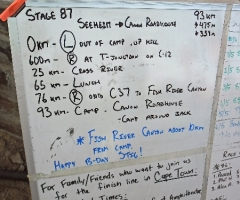 STAGE 87
SEEHEIM → CANON ROADHOUSE 93 KM
0KM - L OUT OF CAMP, UP HILL
600m - R AT T-JUNCTION ON C-12
25 KM - CROSS RIVER
65 KM - LUNCH
76 KM R ONTO C37 TO FISH RIVER CANYON
93 KM - CAMP. CANON ROADHOUSE
- CAMP AROUND BACK
* FISH RIVER CANYON ABOUT
FROM CAMP.
HAPPY B-DAY
For Family/Friends who want to join us
for the finish line in Cape Town
Times: